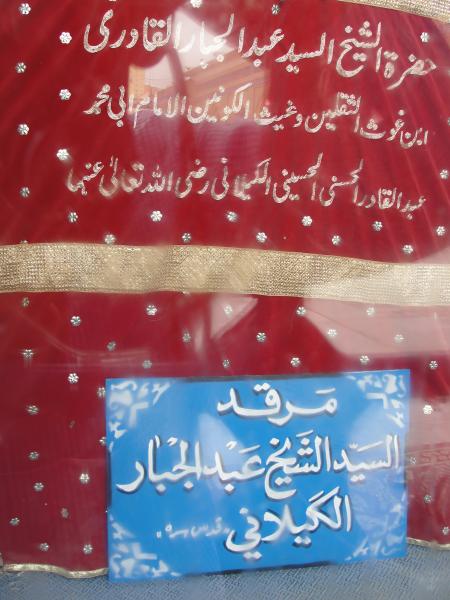 حضرة الشيخ السيد عبد الجبار القادری
ابن غوث الثقلين وغيث الكونين الامام ابی محمد
عبد القادر الحسنی الحسينی الكيلانی رضی الله تعالیٰ عنہما
مَرقد
السَيّد الشَيخ عَبْد الجبْار
الكَيلاني قدس سره